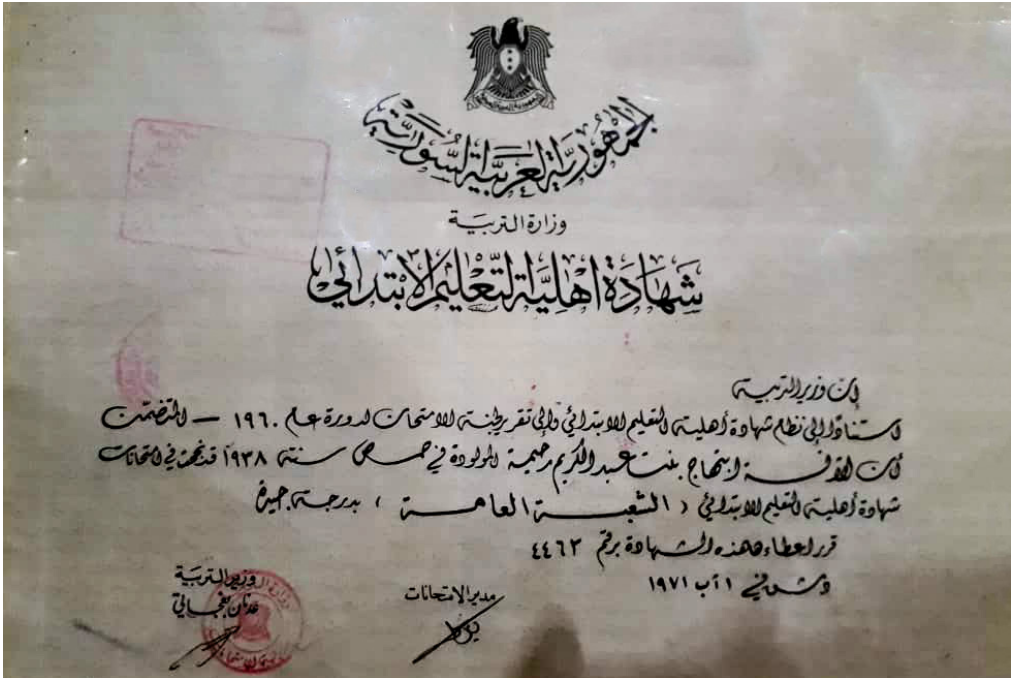 الجمهورية العربية السورية
وزارة التربية
شهادة أهلية التعليم الابتدائي
إن وزير التربية
استناداً إلى نظام شهادة أهلية التعليم الابتدائي وإلى تقرير لجنة الامتحان لدورة عام ١٩٦٠ – المتضمن
أن الآنسة ابتهاج بنت عبد الكريم رحيمة المولودة في حمص سنة ١٩٣٨ قد نجحت في امتحانات
شهادة أهلية التعليم الابتدائي ( الشعبة العامة ) بدرجة جيدة
قرر إعطاء هذه الشهادة برقم ٤٤٦٢
دمشق في ١ آب ١٩٧١
وزير التربية
مدير الامتحانات